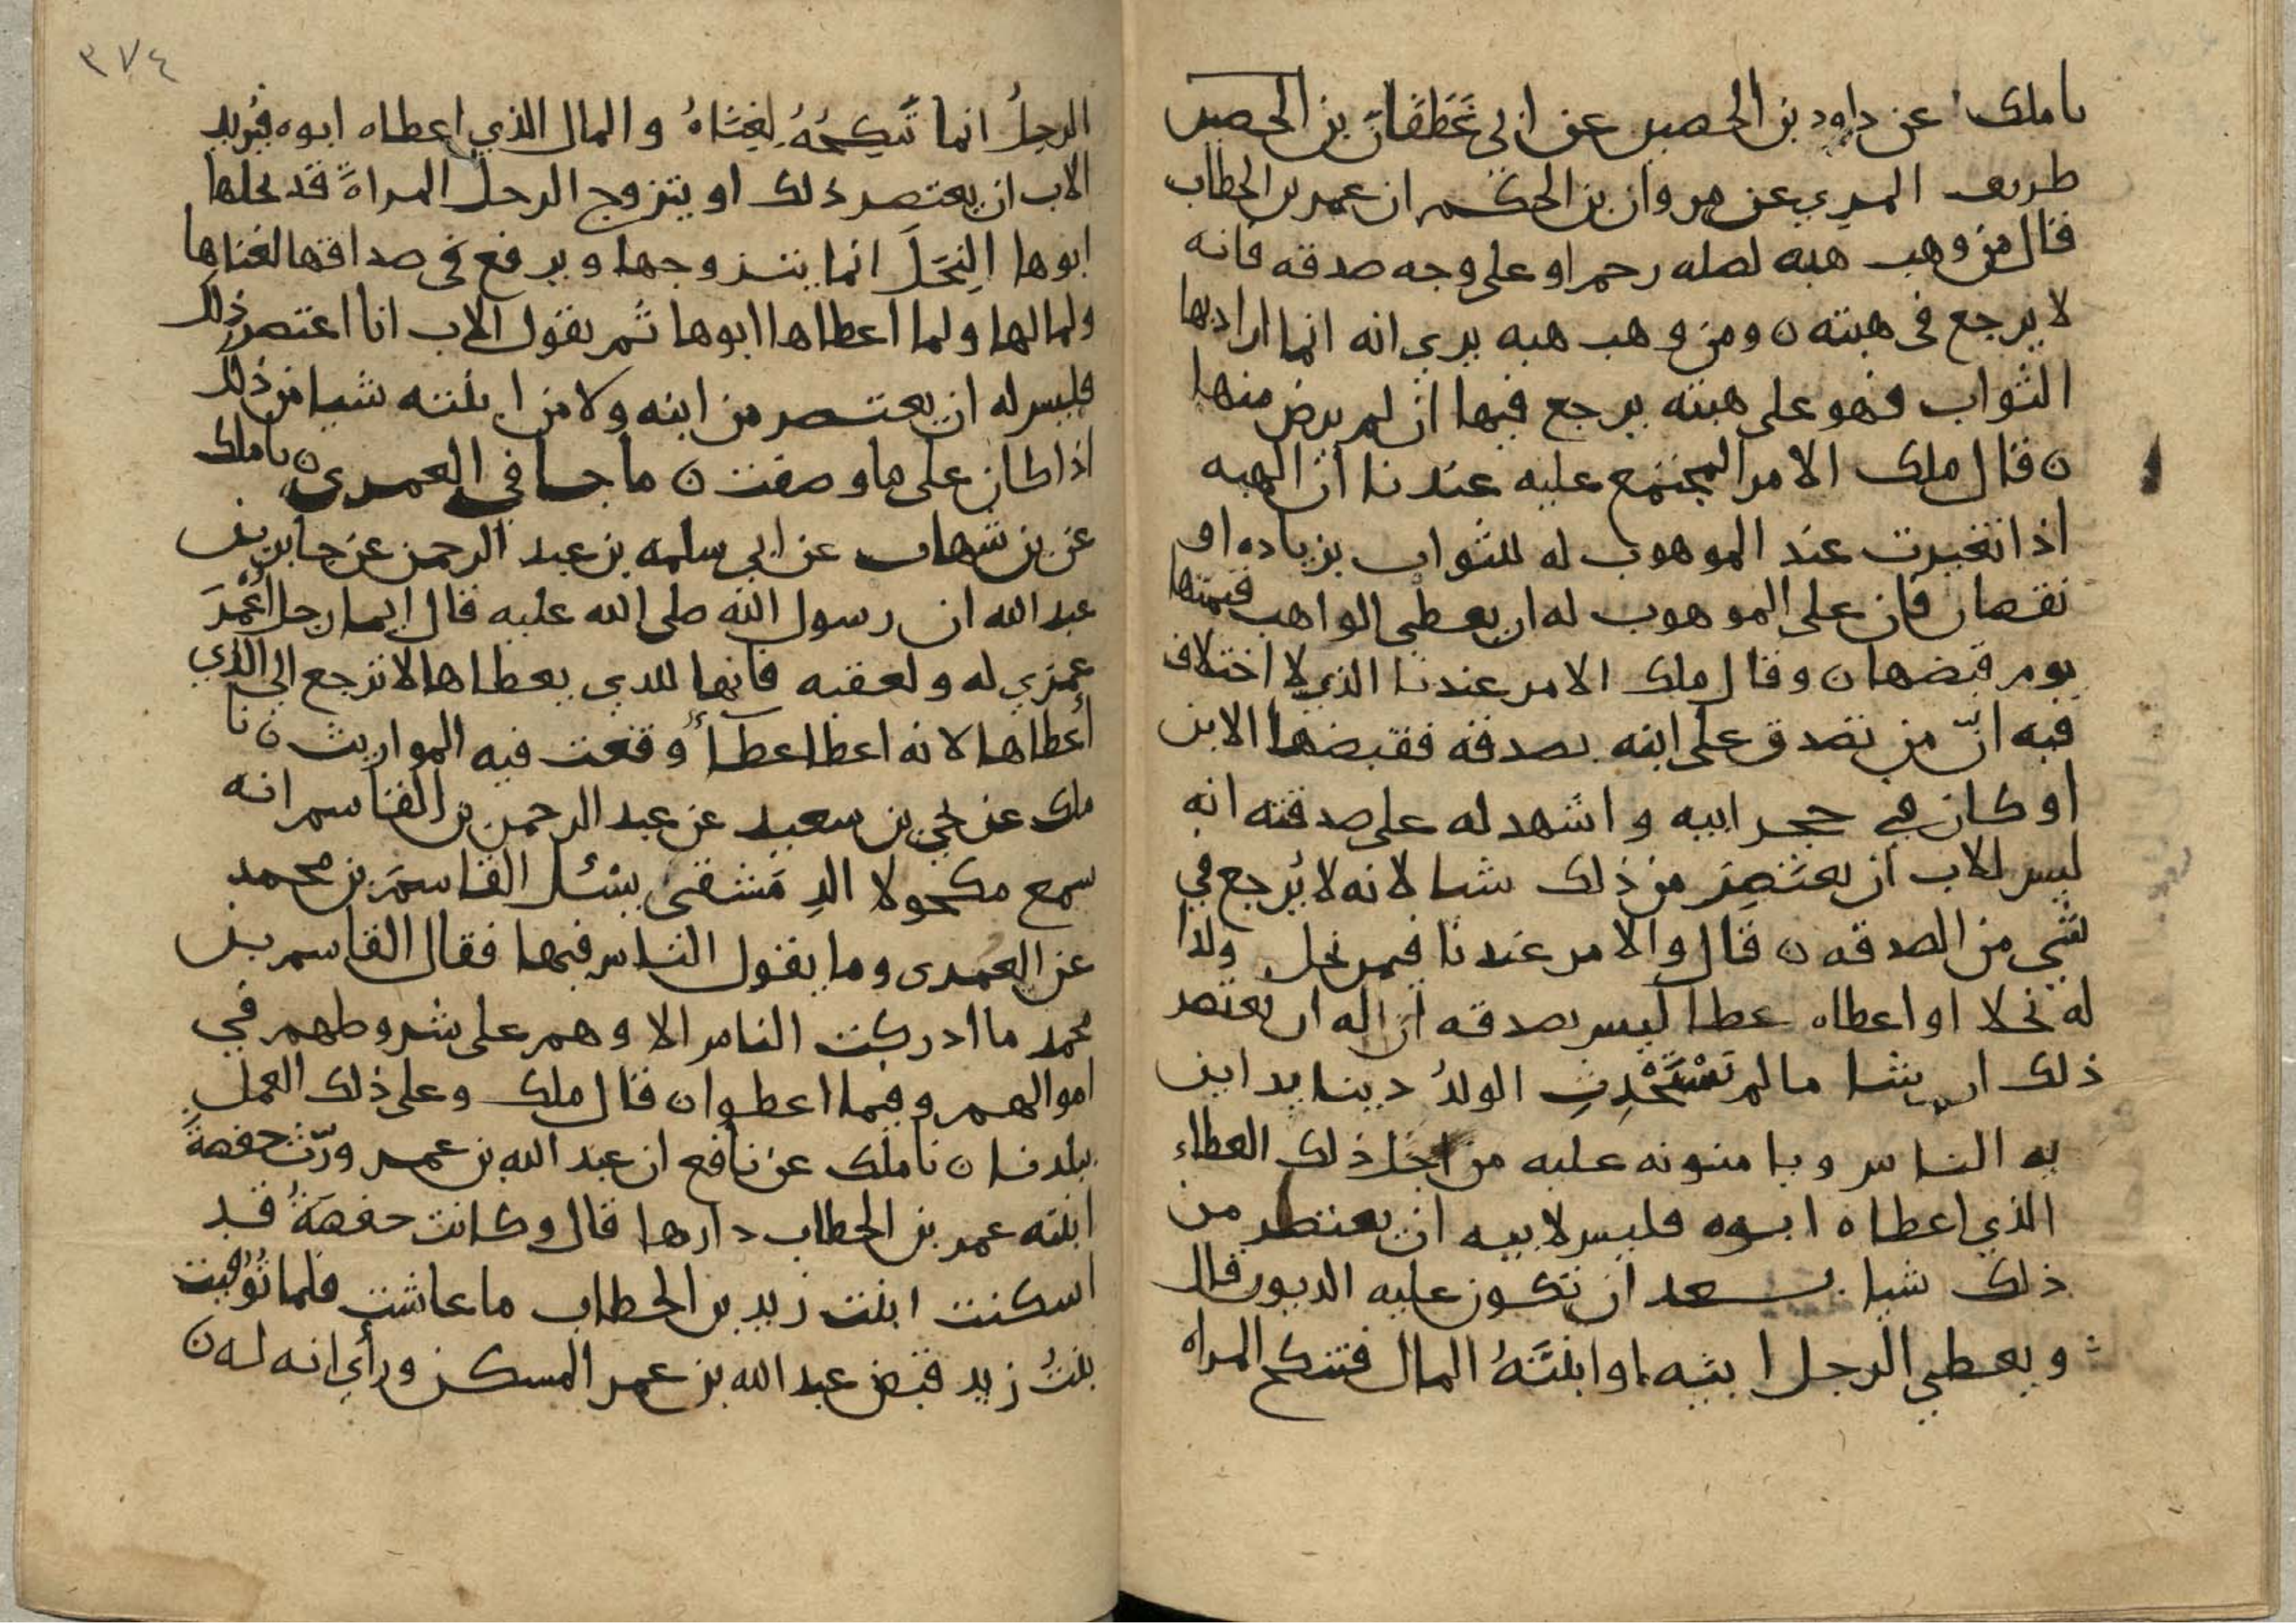 نا ملك عن داود بن الحصين عن ابي غَطَفَانَ بن الحصين
طريف المري عن مروان بن الحكم ان عمر بن الخطاب
قال من وهب هبه لصله رحم او على وجه صدقه فانه
لا يرجع في هبته ن ومن وهب هبه يرى انه انما اراد بها
الثواب فهو على هبته يرجع فيها ان لم يرض منها
ن قال ملك الامر المجتمع عليه عندنا ان الهبه
اذا تغيرت عند الموهوب له للثواب بزياده او
نقصان فان على الموهوب له ان يعطي الواهب قيمتها
يوم قبضها ن وقال ملك الامر عندنا الذي لا اختلاف
فيه انّ من تصدق على ابنه بصدقه فقبضها الابن
او كان في حجر ابيه واشهد له على صدقته انه
ليس للاب ان يعتَصِرَ من ذلك شيا لانه لا يُرجع في
شي من الصدقه ن قال والامر عندنا فيمن نحل ولدا
له نحلا او اعطاه عطا ليس بصدقه ان له ان يعتصر
ذلك ان شا ما لم تَسْتَحْدِثِ الولدُ دينا يداين
به الناس ويامنونه عليه من اجل ذلك العطاء
الذي اعطاه ابوه فليس لابيه ان يعتصر من
ذلك شيا بعد ان تكون عليه الديون قال
ويعطي الرجل ابنه او ابنتَهُ المال فتنكح المراه
٣٧٤
الرجلُ انما تَنكِحُهُ لِغِنَاهُ والمال الذي اعطاه ابوه فيُريد
الاب ان يعتصر ذلك او يتزوج الرجل المراةَ قد نحلها
ابوها النِحَلَ انما يتزوجها ويرفع في صداقها لغناها
ولمالها ولما اعطاها ابوها ثم يقول الاب انا اعتصر ذلك
فليس له ان يعتصر من ابنه ولا من ابنته شيا من ذلك
اذا كان على ما وصفت ن ما جا في العمرى ن نا ملك
عن بن شهاب عن ابي سلمه بن عبد الرحمن عن جابر بن
عبد الله ان رسول الله صلى الله عليه قال ايما رجل أُعْمِرَ
عمرى له ولعقبه فانها للذي يعطاها لا ترجع الى الذي
أعطاها لانه اعطا عطآءً وقعت فيه المواريث ن نا
ملك عن يحي بن سعيد عن عبد الرحمن بن القاسم انه
سمع مكحولا الدِمَشقى يسْئل القاسمَ بن محمد
عن العمرى وما يقول الناس فيها فقال القاسم بن
محمد ما ادركت الناس الا وهم على شروطهم في
اموالهم وفيما اعطوا ن قال ملك وعلى ذلك العمل
ببلدنا ن نا ملك عن نافع ان عبد الله بن عمر ورّث حفصةَ
ابنته عمر بن الخطاب دارها قال وكانت حفصةُ قد
اسكنت ابنت زيد بن الخطاب ما عاشت فلما تُوُفيت
بنتُ زيد قبض عبد الله بن عمر المسكن ورأي انه له ن